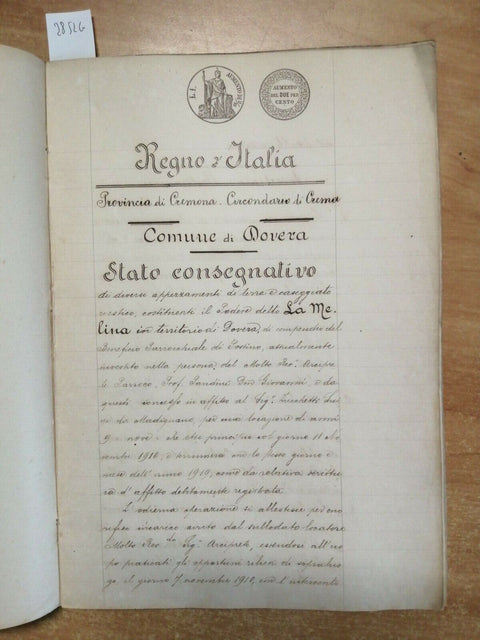 2852G
L. 1.
AUMENTO
AUMENTO
DEL DUE PER
CENTO
Regno d'Italia
Provincia di Cremona. Circondario di Crema
Comune di Dovera
Stato consegnativo
di diversi appezzamenti di terra e caseggiato
rustico, costituenti il Podere detto La Me-
lina in territorio di Dovera, di compendio del
Beneficio Parrocchiale di Postino, attualmente
investito nella persona del Molto Rev. Arcipre
te Parroco, Prof. Pandini Don Giovanni, e da
questi concesso in affitto al Sig. Zucchetti
di Madignano, per una locazione di anni
9 - nove - che ebbe principio col giorno 11 No
vembre 1910, e terminerà con lo stesso giorno e
mese dell'anno 1919, come da relativa scrittu
ra d'affitto debitamente registrata.
L'odierna operazione si allestisce per ono
rifico incarico avuto dal sullodato locatore
Molto Rev. Sig. Arciprete, essendosi all'uo
po praticati gli opportuni rilievi di sopraluo
go il giorno 7 novembre 1910, con l'intervento